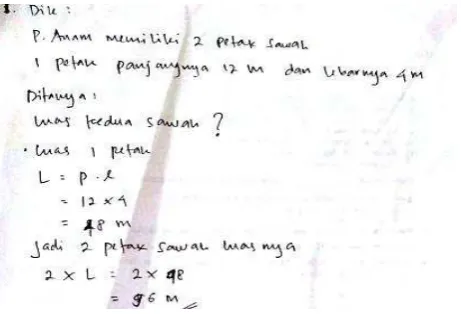 1. Dik :
P. Anam memiliki 2 petak sawah
1 petak panjangnya 12 m dan lebarnya 4 m
Ditanya :
luas kedua sawah ?
• luas 1 petak
L = p . l
= 12 x 4
= 48 m
Jadi 2 petak sawah luasnya
2 x L = 2 x 48
= 96 m